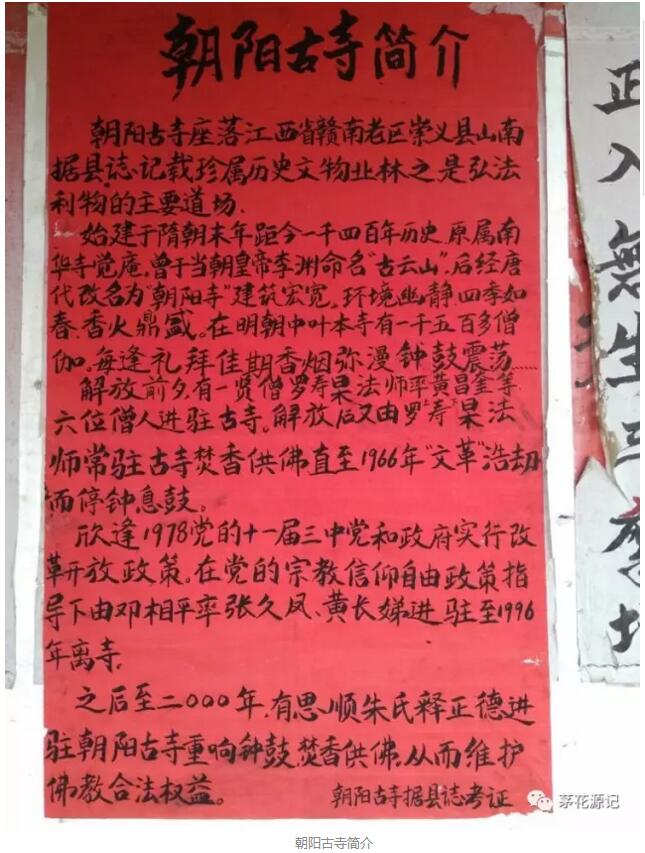 朝阳古寺简介
朝阳古寺座落江西省赣南老区崇义县山南
据县志记载珍属历史文物业林之是弘法
利物的主要道场.
始建于隋朝末年距今一千四百年历史.原属南
华寺觉庵.曾于当朝皇帝李渊命名"古云山".后经唐
代改名为"朝阳寺"建筑宏宽.环境幽静四季如
春.香火鼎盛。在明朝中叶本寺有一千五百多僧
伽。每逢礼拜佳期香烟弥漫钟鼓震荡……
解放前夕.有一贤僧罗寿杲法师率黄昌奎等
六位僧人进驻古寺。解放后又由罗上寿下杲法
师常驻古寺焚香供佛直至1966年"文革"浩劫
而停钟息鼓。
欣逢1978党的十一届三中党和政府实行改
革开放政策。在党的宗教信仰自由政策指
导下由邓相平率张久凤、黄长娣进驻至1996
年离寺.
之后至二000年.有思顺朱氏释正德进
驻朝阳古寺重响钟鼓.焚香供佛.从而维护
佛教合法权益。
朝阳古寺据县志考证
正入無生三
茅花源记
朝阳古寺简介